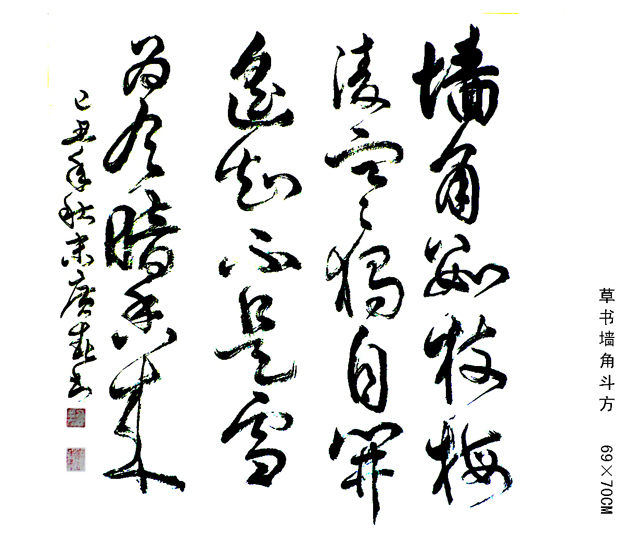 墙角数枝梅
凌寒独自開
遥知不是雪
为有暗香来
己丑年秋末廣春书
草书墙角斗方 69×70CM